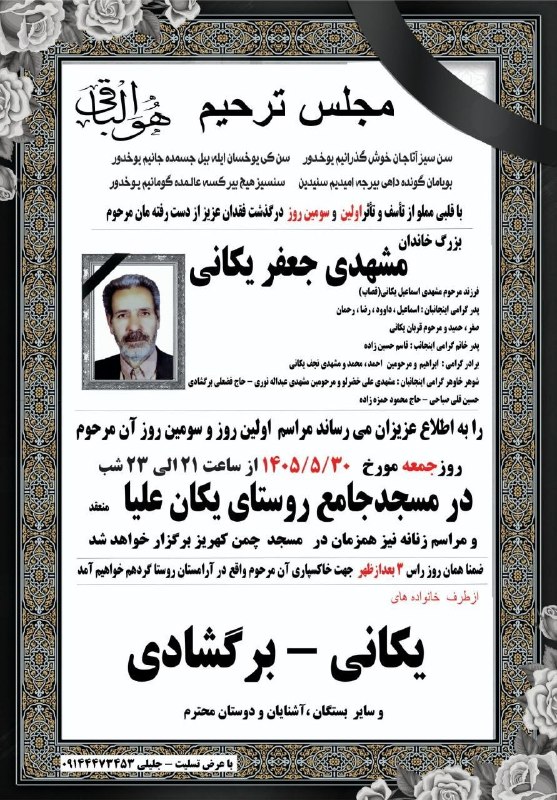 هوالباقی
مجلس ترحیم
سن سیز آتاجان خوش گذرانیم یوخدور سن کی یوخسان ایله بیل جسمده جانیم یوخدور
بویامان گونده داهی بیرجه امیدیم سنیدین سنسیز هیچ بیر کسه عالمده گومانیم یوخدور
با قلبی مملو از تأسف و تأثر اولین و سومین روز درگذشت فقدان عزیز از دست رفته مان مرحوم
بزرگ خاندان
مشهدی جعفر یکانی
فرزند مرحوم مشهدی اسماعیل یکانی(قصاب)
پدر گرامی اینجانبان : اسماعیل ، داوود ، رضا ، رحمان
صفر ، حمید و مرحوم قربان یکانی
پدر خانم گرامی اینجانب : قاسم حسین زاده
برادر گرامی : ابراهیم و مرحومین احمد، محمد و مشهدی نجف یکانی
شوهر خاوهر گرامی اینجانبان : مشهدی علی خضرلو و مرحومین مشهدی عبداله نوری - حاج فضعلی برگشادی
حسین قلی صباحی - حاج محمود حمزه زاده
را به اطلاع عزیزان می رساند مراسم اولین روز و سومین روز آن مرحوم
روز جمعه مورخ ۱۴۰۵/۵/۳۰ از ساعت ۲۱ الی ۲۳ شب
در مسجدجامع روستای یکان علیا منعقد
و مراسم زنانه نیز همزمان در مسجد چمن کهریز برگزار خواهد شد
ضمنا همان روز راس ۳ بعدازظهر جهت خاکسپاری آن مرحوم واقع در آرامستان روستا گردهم خواهیم آمد
ازطرف خانواده های
یکانی - برگشادی
و سایر بستگان ،آشنایان و دوستان محترم
با عرض تسلیت - جلیلی ۰۹۱۴۴۴۷۳۴۵۳